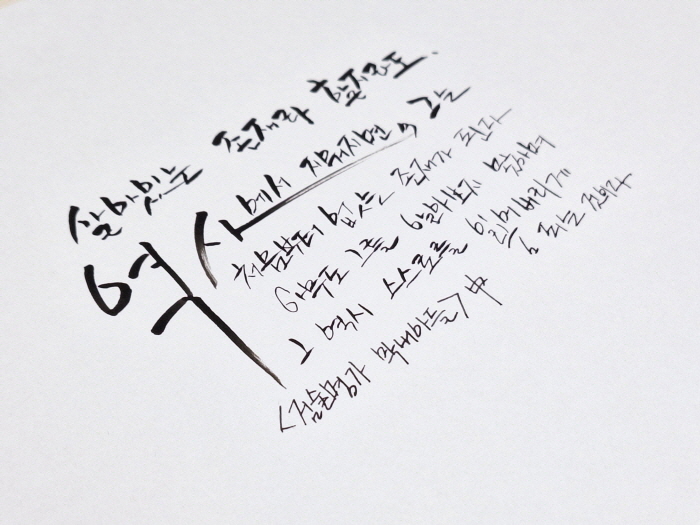 살아있는 존재라 할지라도.
역사에서 지워지면 그는
처음부터 없는 존재가 된다
아무도 그를 알아보지 못하며
그 역시 스스로를 잃어버리게
되는 것이다
<검술명가 막내아들> 中